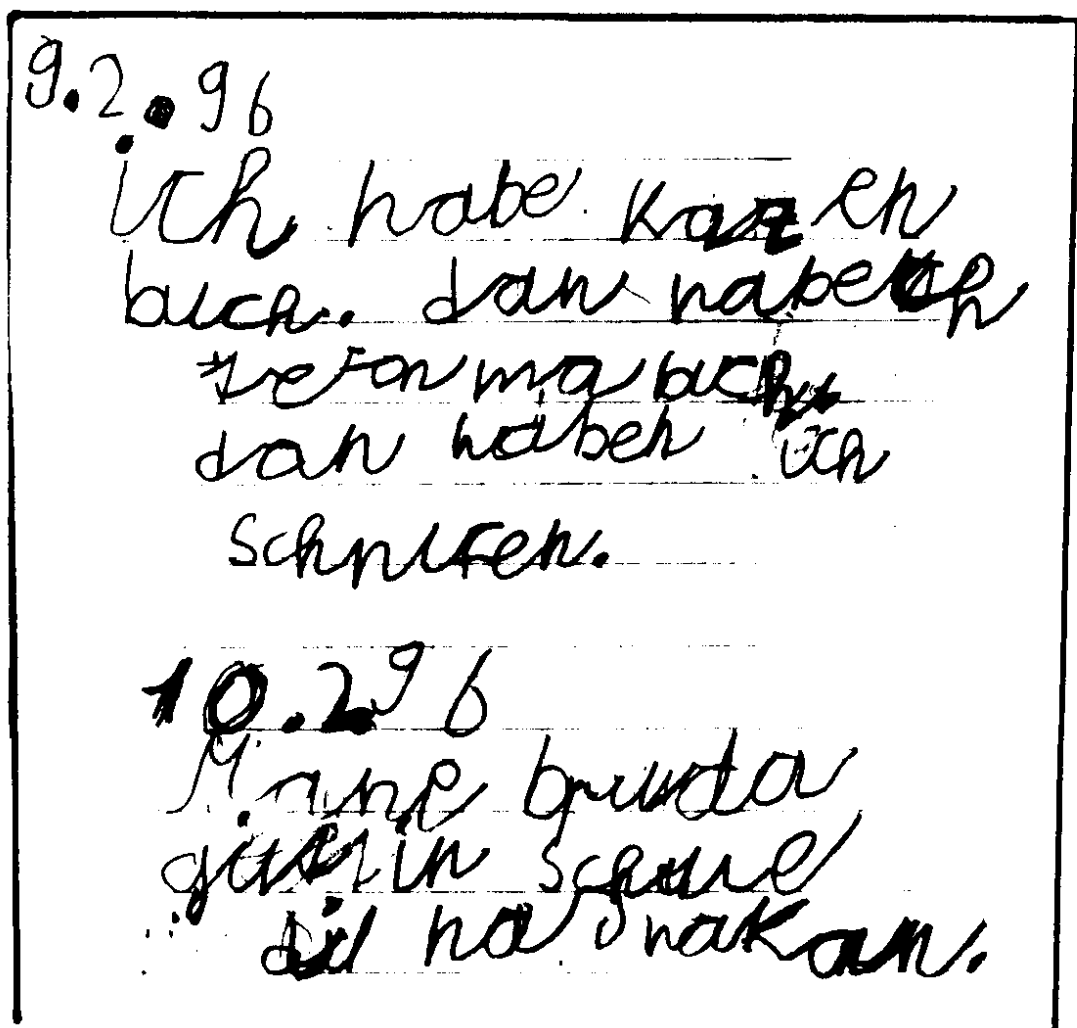 9.2.96
ich habe Kazen
buch. dan habe ich
ma buch.
dan haben ich
schnufen.
10.2 96
Mane bruda
git in schule